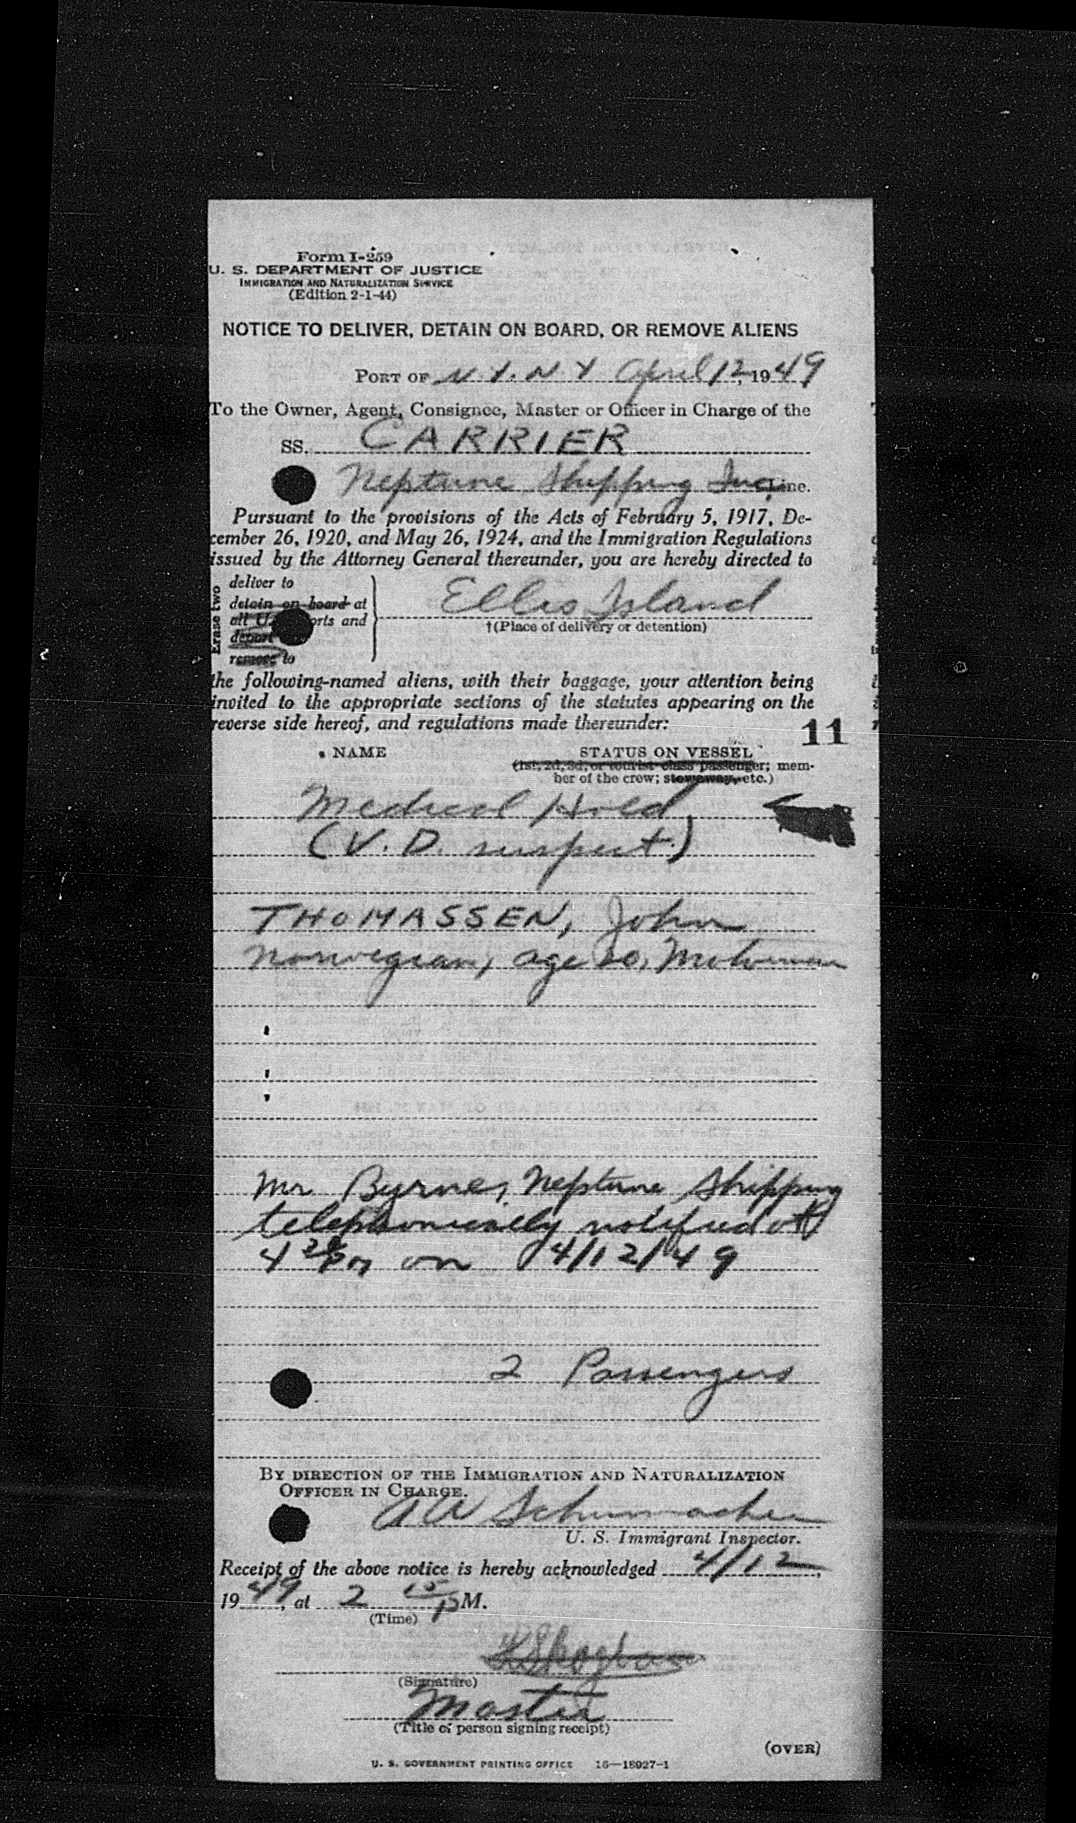 Form I-259
U. S. DEPARTMENT OF JUSTICE
IMMIGRATION AND NATURALIZATION SERVICE
(Edition 2-1-44)
NOTICE TO DELIVER, DETAIN ON BOARD, OR REMOVE ALIENS
PORT OF N.Y. N.Y April 12, 1949
To the Owner, Agent, Consignee, Master or Officer in Charge of the
SS. CARRIER
Neptune Shipping Inc. Line.
Pursuant to the provisions of the Acts of February 5, 1917, De-
cember 26, 1920, and May 26, 1924, and the Immigration Regulations
issued by the Attorney General thereunder, you are hereby directed to
Erase two
deliver to
detain on board at
all U. ports and
depart
remove to
Ellis Island
†(Place of delivery or detention)
the following-named aliens, with their baggage, your attention being
invited to the appropriate sections of the statutes appearing on the
reverse side hereof, and regulations made thereunder:
11
NAME STATUS ON VESSEL
(1st, 2d, 3d, or tourist class passenger; mem-
ber of the crew; stowaway, etc.)
Medical Hold
(V.D. suspect)
THOMASSEN, John
Norwegian, age 20, Motorman
Mr Byrne, Neptune Shipping
telephonically notified at
4 20 Pm on 4/12/49
2 Passengers
BY DIRECTION OF THE IMMIGRATION AND NATURALIZATION
OFFICER IN CHARGE.
A W Schumacher
U. S. Immigrant Inspector.
Receipt of the above notice is hereby acknowledged 4/12,
1949, at 2 15 PM.
(Time)
(Signature)
Master
(Title of person signing receipt)
(OVER)
U. S. GOVERNMENT PRINTING OFFICE 16—18027-1